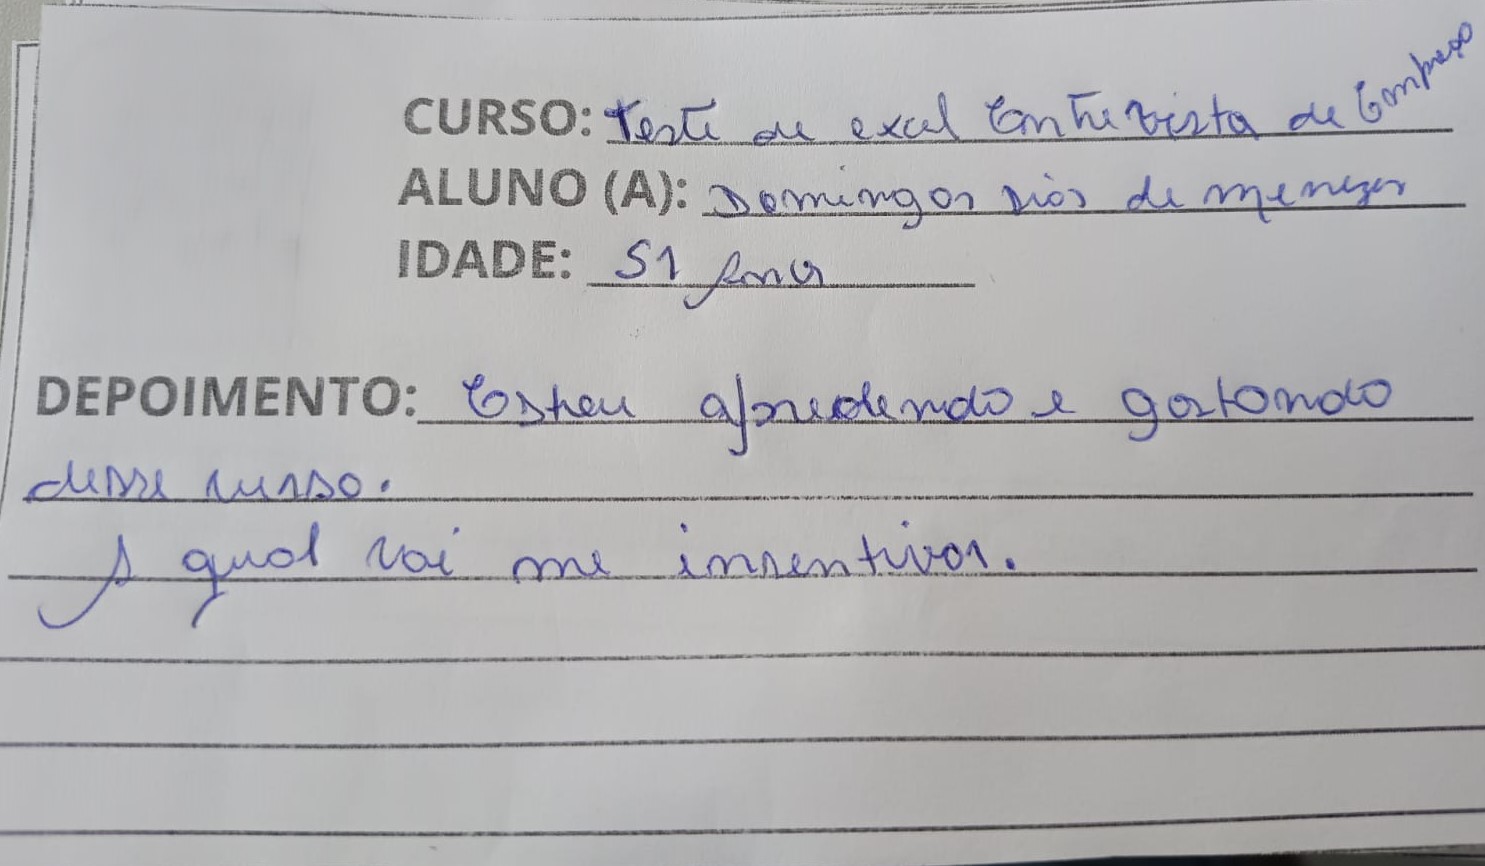 CURSO: Teste de excel Entrevista de Emprego
ALUNO (A): Domingos Dios de menezes
IDADE: 51 Anos
DEPOIMENTO: Estou apredendo e gostando
desse curso.
A qual vai me insentivar.